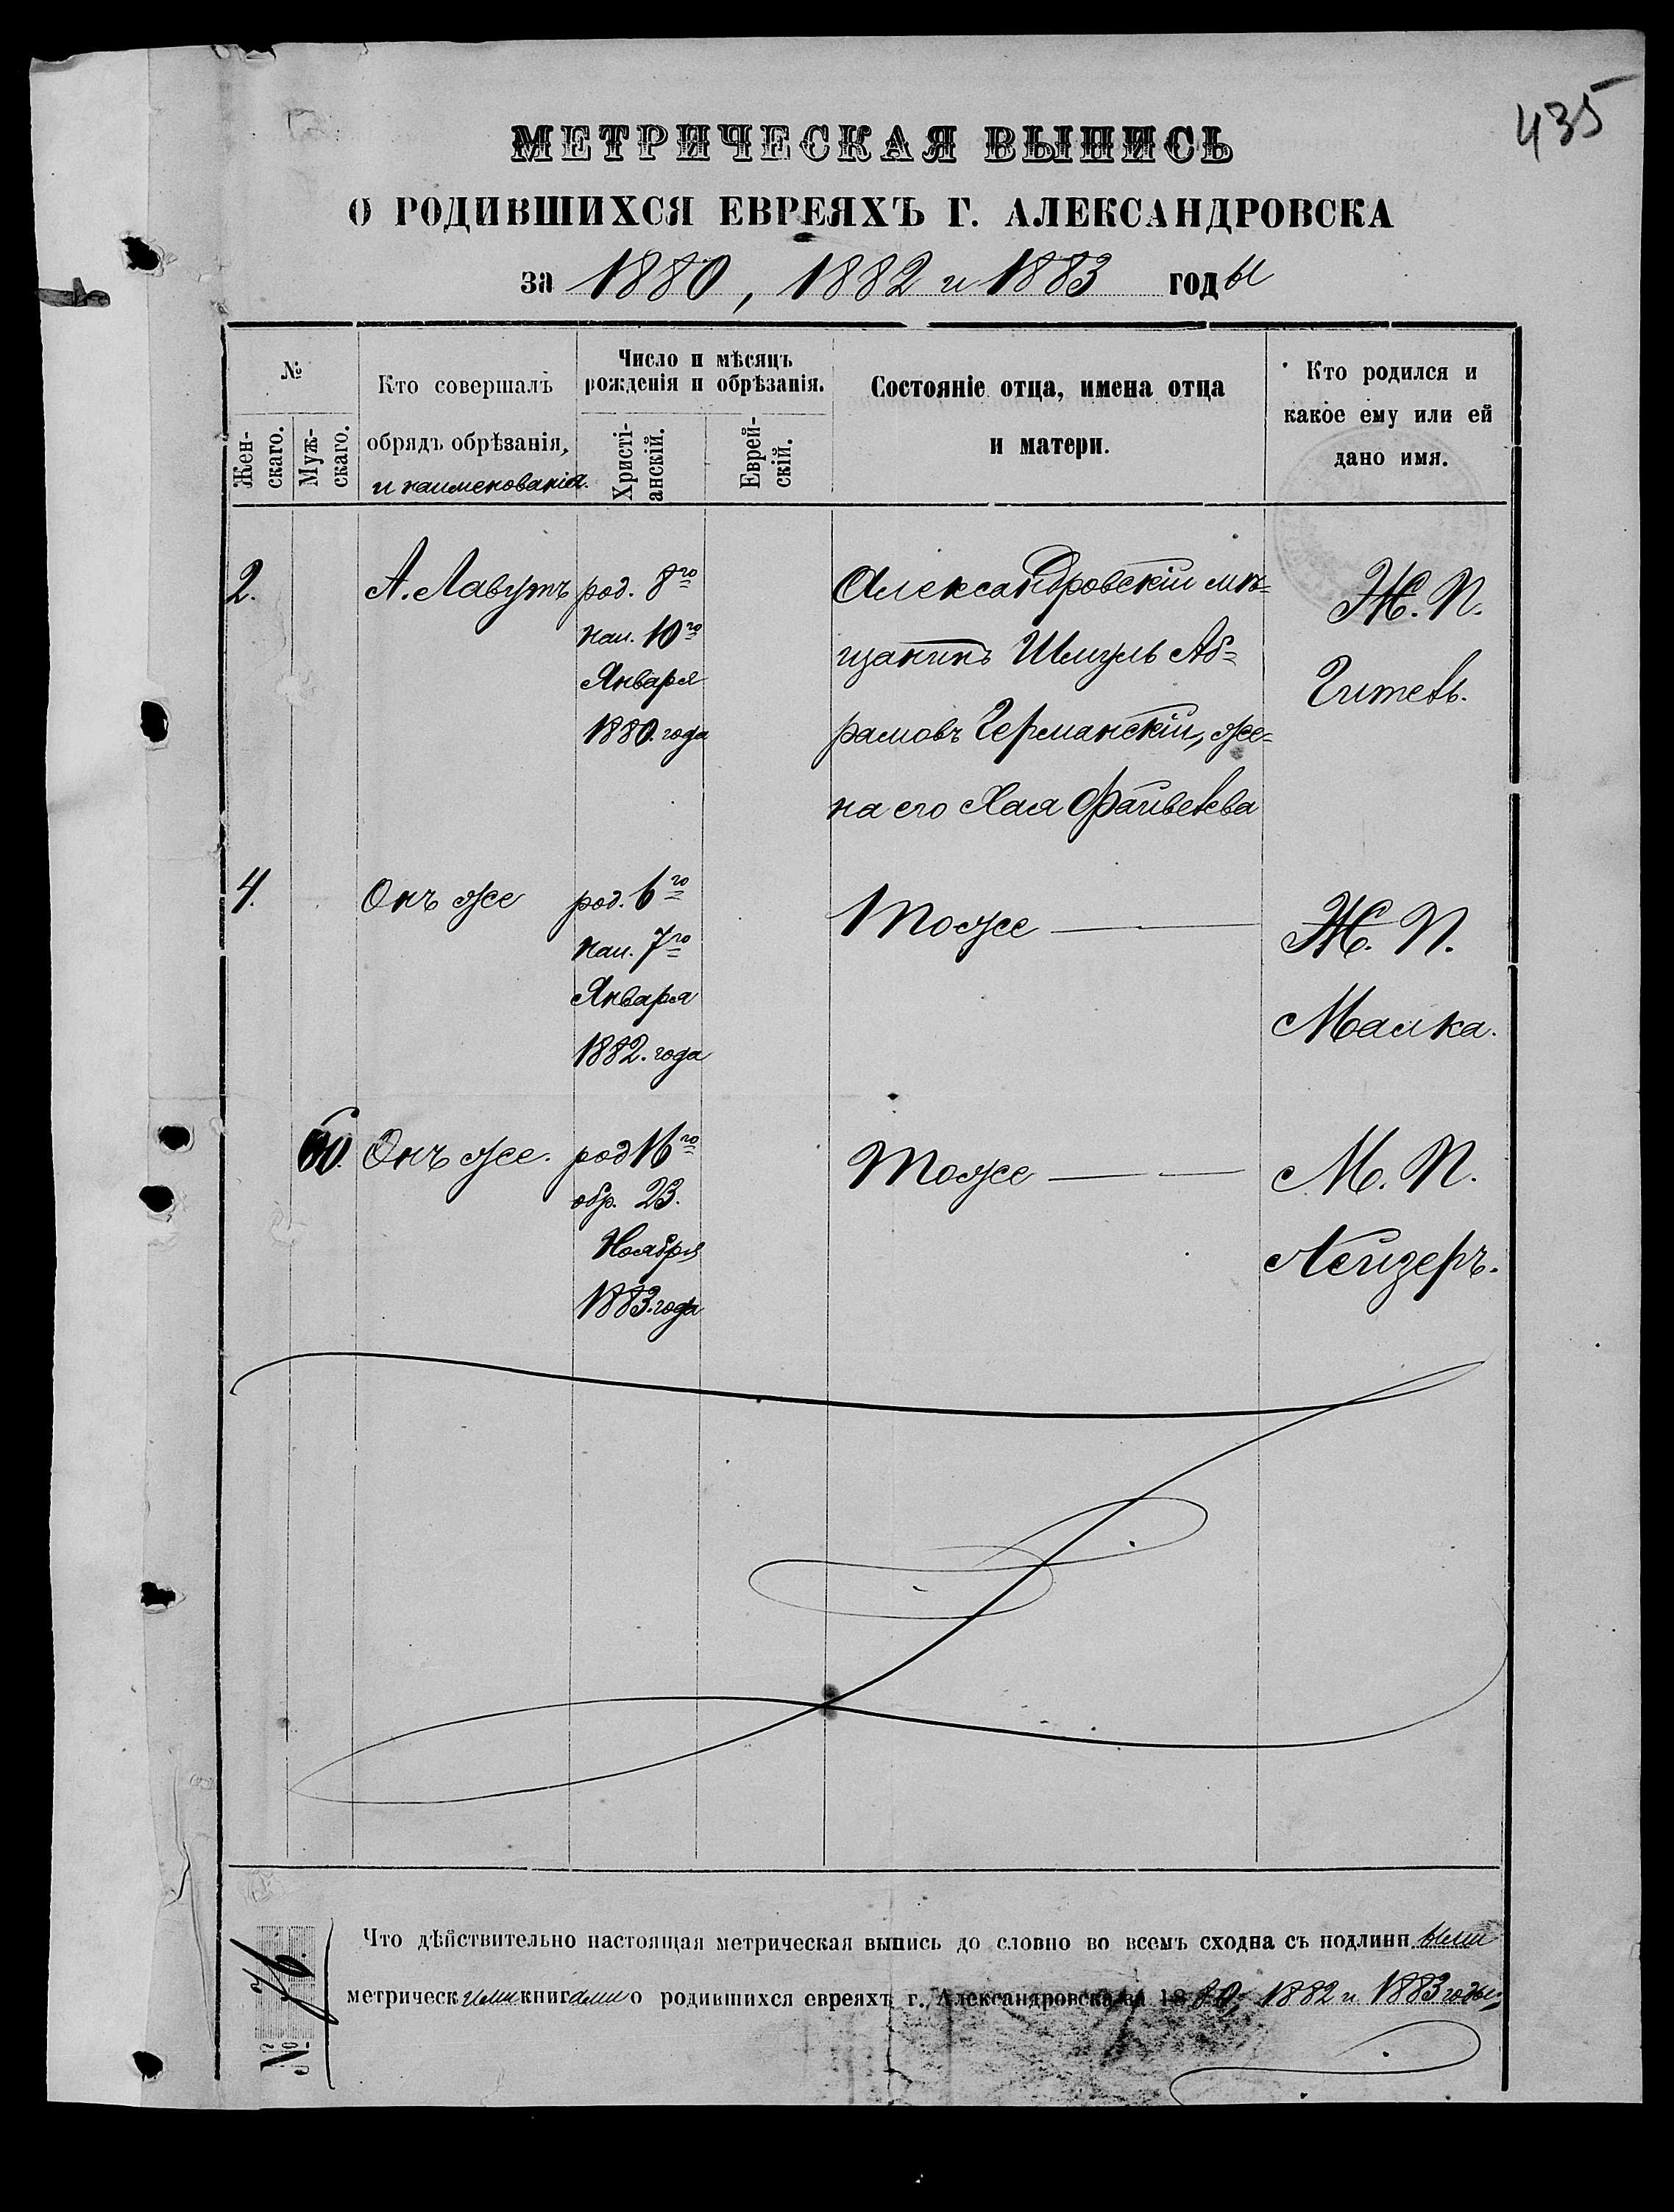 435
МЕТРИЧЕСКАЯ ВЫПИСЬ
О РОДИВШИХСЯ ЕВРЕЯХЪ Г. АЛЕКСАНДРОВСКА
за 1880, 1882 и 1883 годы
№
Жен-
скаго.
Муж-
скаго.
Кто совершалъ
обрядъ обрѣзанія,
и наименованія.
Число и мѣсяцъ
рожденія и обрѣзанія.
Христі-
анскій.
Еврей-
скій.
Состояніе отца, имена отца
и матери.
Кто родился и
какое ему или ей
дано имя.
2.
А. Лавутъ
род. 8го
наи. 10го
Января
1880. года
Александровскій мѣ=
щанинъ Шмуль Аб=
рамовъ Германскій, же=
на его Хая Файвелева
Ж. П.
Гитель.
4.
Онъ же
род. 6го
наи. 7го
Января
1882. года
Тоже
Ж. П.
Малка.
60.
Онъ же.
род 16го
обр. 23.
Ноября
1883. года
Тоже
М. П.
Лейзеръ.
Что дѣйствительно настоящая метрическая выпись до словно во всемъ сходна съ подлинными
метрическими книгами о родившихся евреяхъ г. Александровска за 1880, 1882 и 1883 годы,
№ 76.